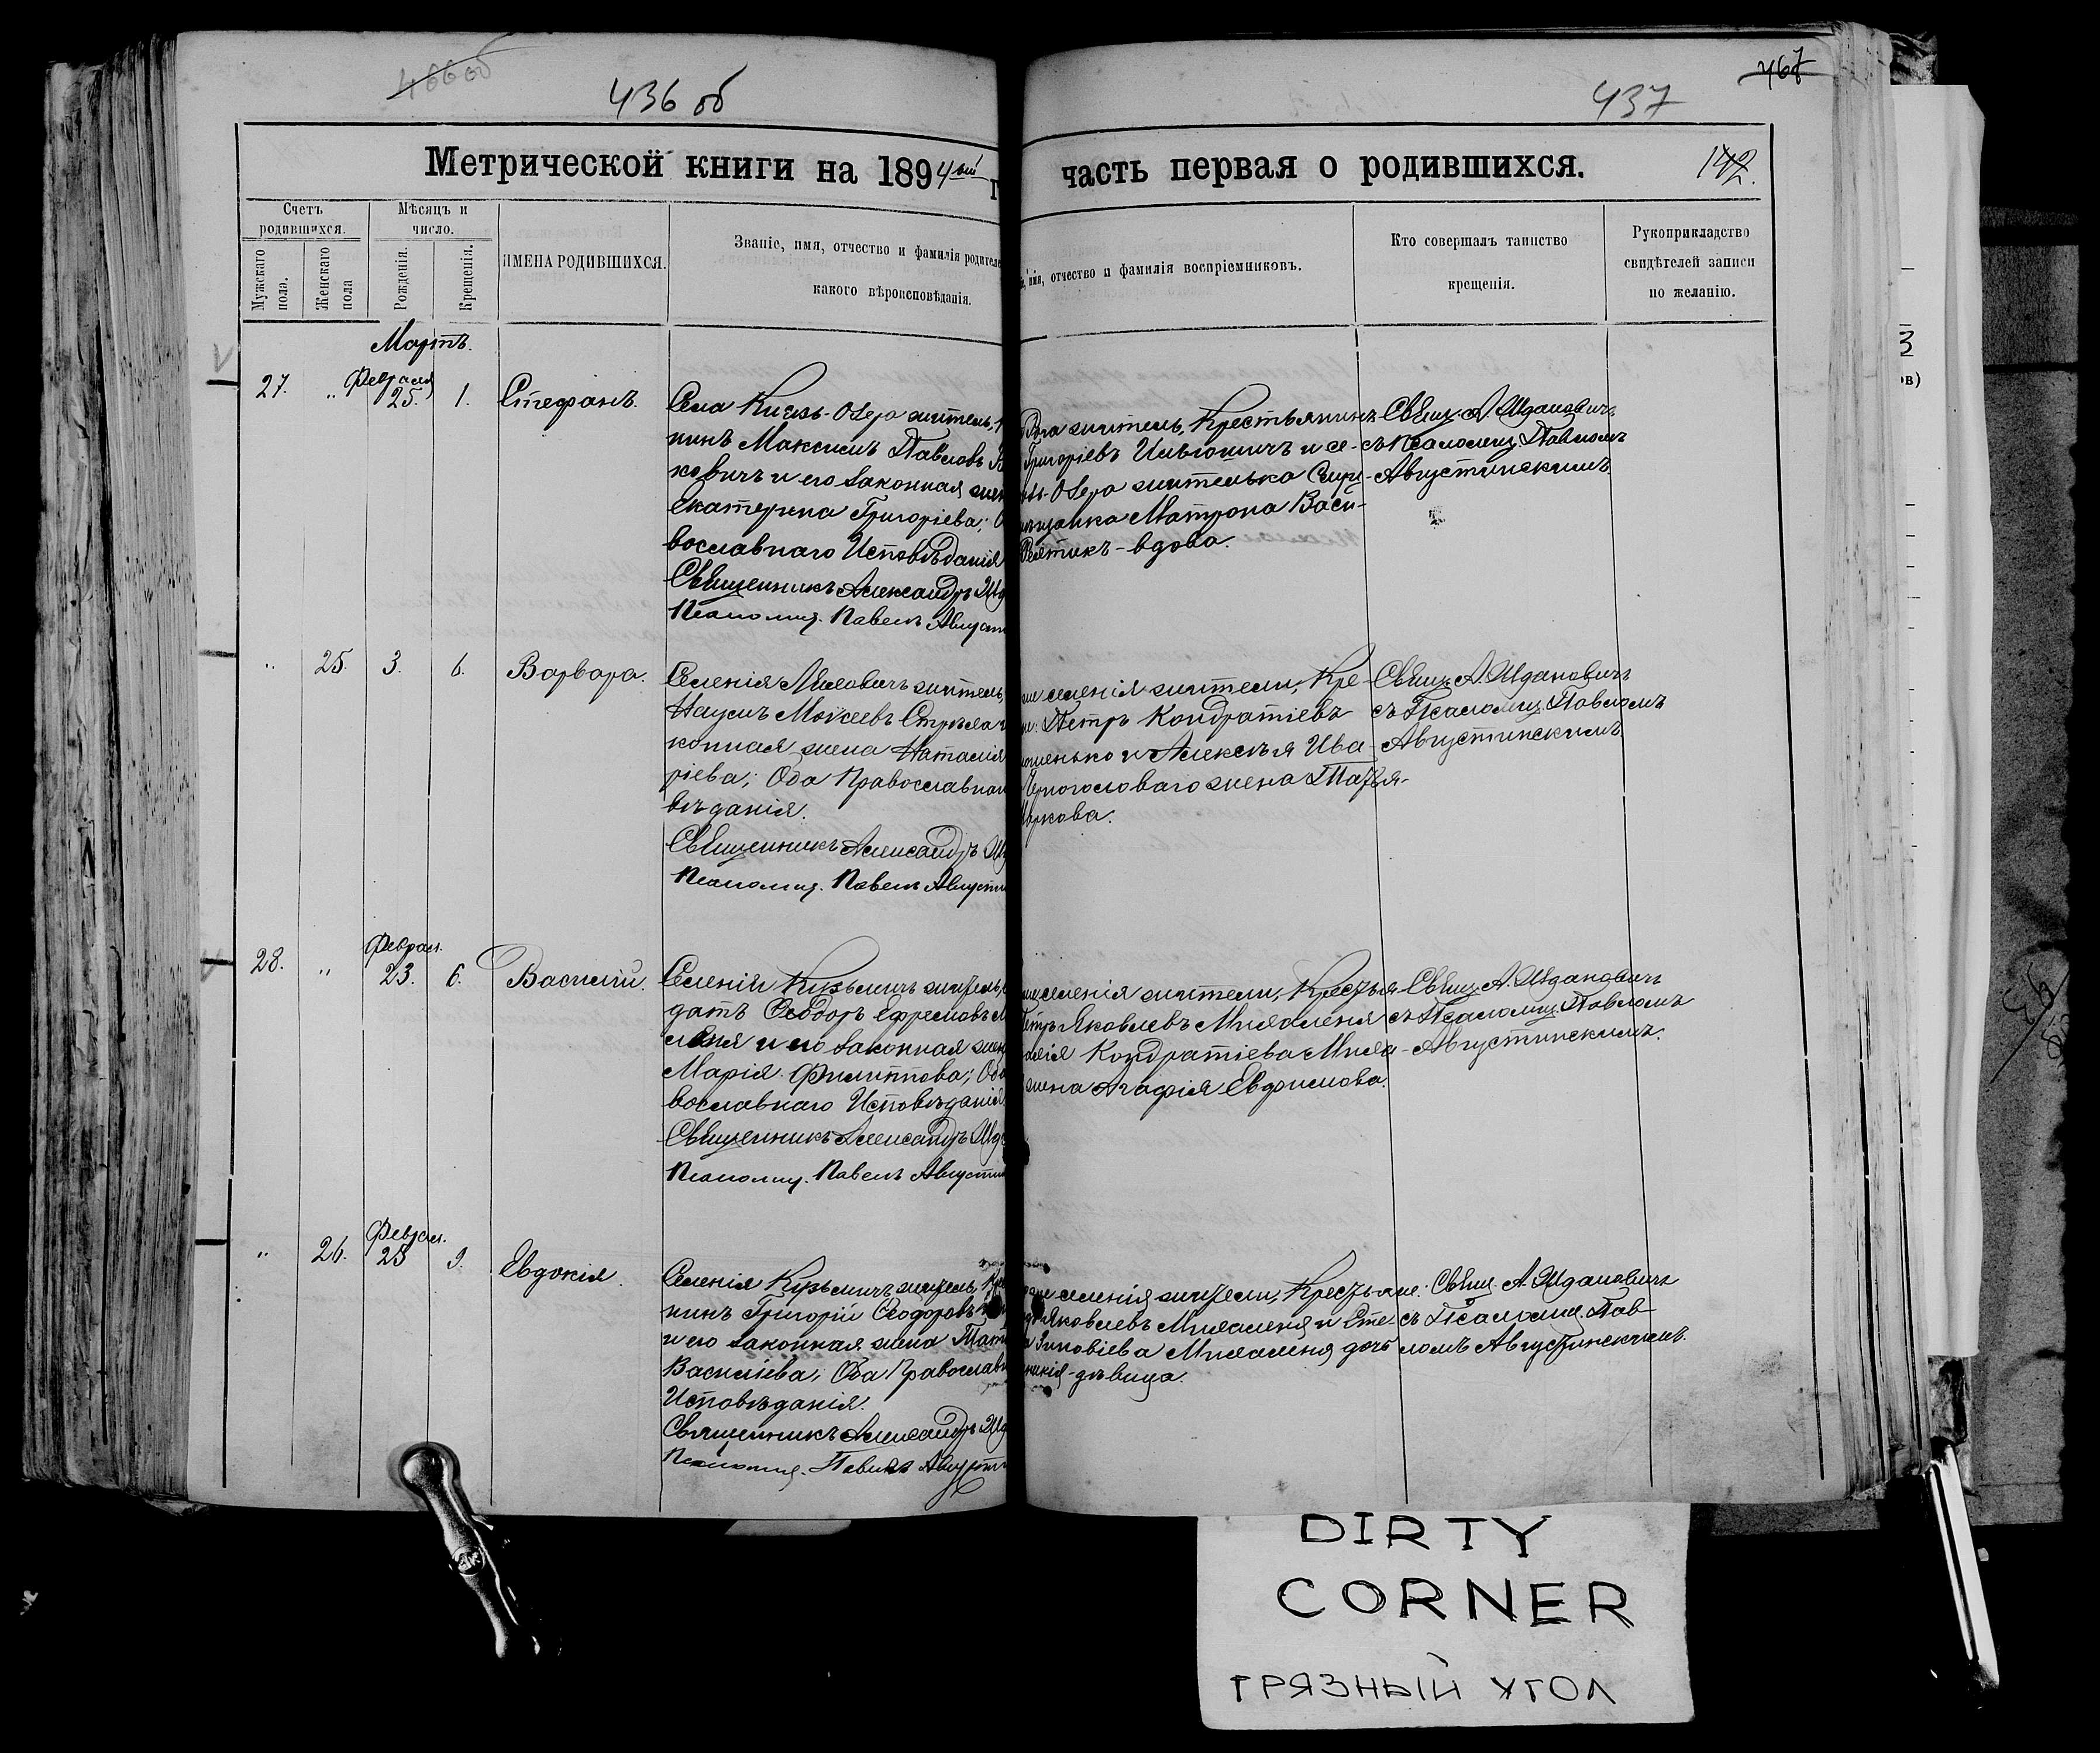 436 об
437
Метрической книги на 1894ый г
часть первая о родившихся.
142.
Счетъ родившихся.
Мѣсяцъ и число.
Мужскаго пола.
Женскаго пола
Рожденія.
Крещенія.
ИМЕНА РОДИВШИХСЯ.
Званіе, имя, отчество и фамилія родителе
какого вѣроисповѣданія.
имя, отчество и фамилія воспріемниковъ.
Кто совершалъ таинство
крещенія.
Рукоприкладство
свидѣтелей записи
по желанію.
Мартъ.
27. " Февраля 25. 1. Стефанъ.
Села Князь-Озера житель,
нинъ Максимъ Павловъ
ковичъ и его законная жен
Екатерина Григоріева; О
вославнаго Исповѣданія
Священникъ Александръ Жд
Псаломщ. Павелъ Август
Озера житель, Крестьянинъ
Григорьевъ Ильюшичъ и се-
Озера жителька
Матрона Васи-
вдова.
Свящ. А. Жданович
съ Псаломщ. Павломъ
Августинскимъ
" 25. 3. 6. Варвара.
Селенія житель,
Наумъ Моисеевъ
конная жена Наталія
ріева; Оба Православна
вѣданія.
Священникъ Александръ Жд
Псаломщ. Павелъ Августи
селенія жители, Кре-
Петръ Кондратіевъ
и Алексѣя Ива-
жена
Маркова.
Свящ. А. Ждановичъ
съ Псаломщ. Павломъ
Августинскимъ
28. " Феврал. 23. 6. Василій.
Селенія Кузьмичъ житель,
датъ Ѳеодоръ Ефремовъ М
леня и его законная жен
Марія Филиппова; Оба
вославнаго Исповѣданія
Священникъ Александръ Жд
Псаломщ. Павелъ Августи
селенія жители, Кресть
Петръ Яковлевъ Миколеня
Кондратіева Мика-
жена Агафія Евфимова.
Свящ. А. Ждановичъ
съ Псаломщ. Павломъ
Августинскимъ.
" 26. Феврал. 28 9. Евдокія.
Селенія Кузьмичъ житель, Кре
нинъ Григорій Ѳеодоровъ
и его законная жена Тать
Василіева, Оба Православн
Исповѣданія.
Священникъ Александръ Жд
Псаломщ. Павелъ Августи
селенія жители, Крестьяне:
Яковлевъ Миколеня и Сте-
Зиновіева Миколеня дочь
дѣвица.
Свящ. А. Ждановичъ
съ Псаломщ. Пав-
ломъ Августинскимъ.
DIRTY
CORNER
ГРЯЗНЫЙ УГОЛ